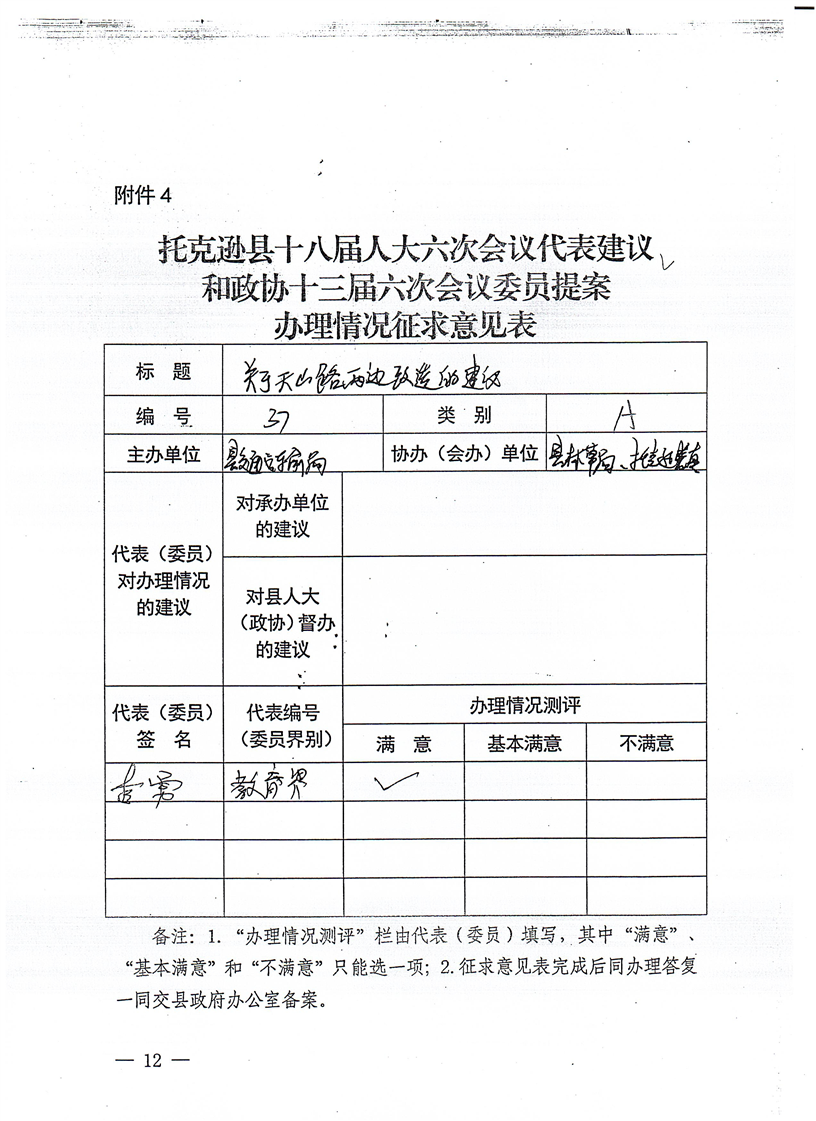 附件4
托克逊县十八届人大六次会议代表建议
和政协十三届六次会议委员提案
办理情况征求意见表
标 题 关于天山路两边改造的建议
编 号 37 类 别 A
主办单位 县交通运输局 协办（会办）单位 县林草局、托克逊镇
代表（委员）
对办理情况
的建议
对承办单位
的建议
对县人大
（政协）督办
的建议
代表（委员）
签 名
代表编号
（委员界别）
办理情况测评
满 意 基本满意 不满意
教育界 ✓
备注：1. “办理情况测评”栏由代表（委员）填写，其中“满意”、
“基本满意”和“不满意”只能选一项；2.征求意见表完成后同办理答复
一同交县政府办公室备案。
— 12 —